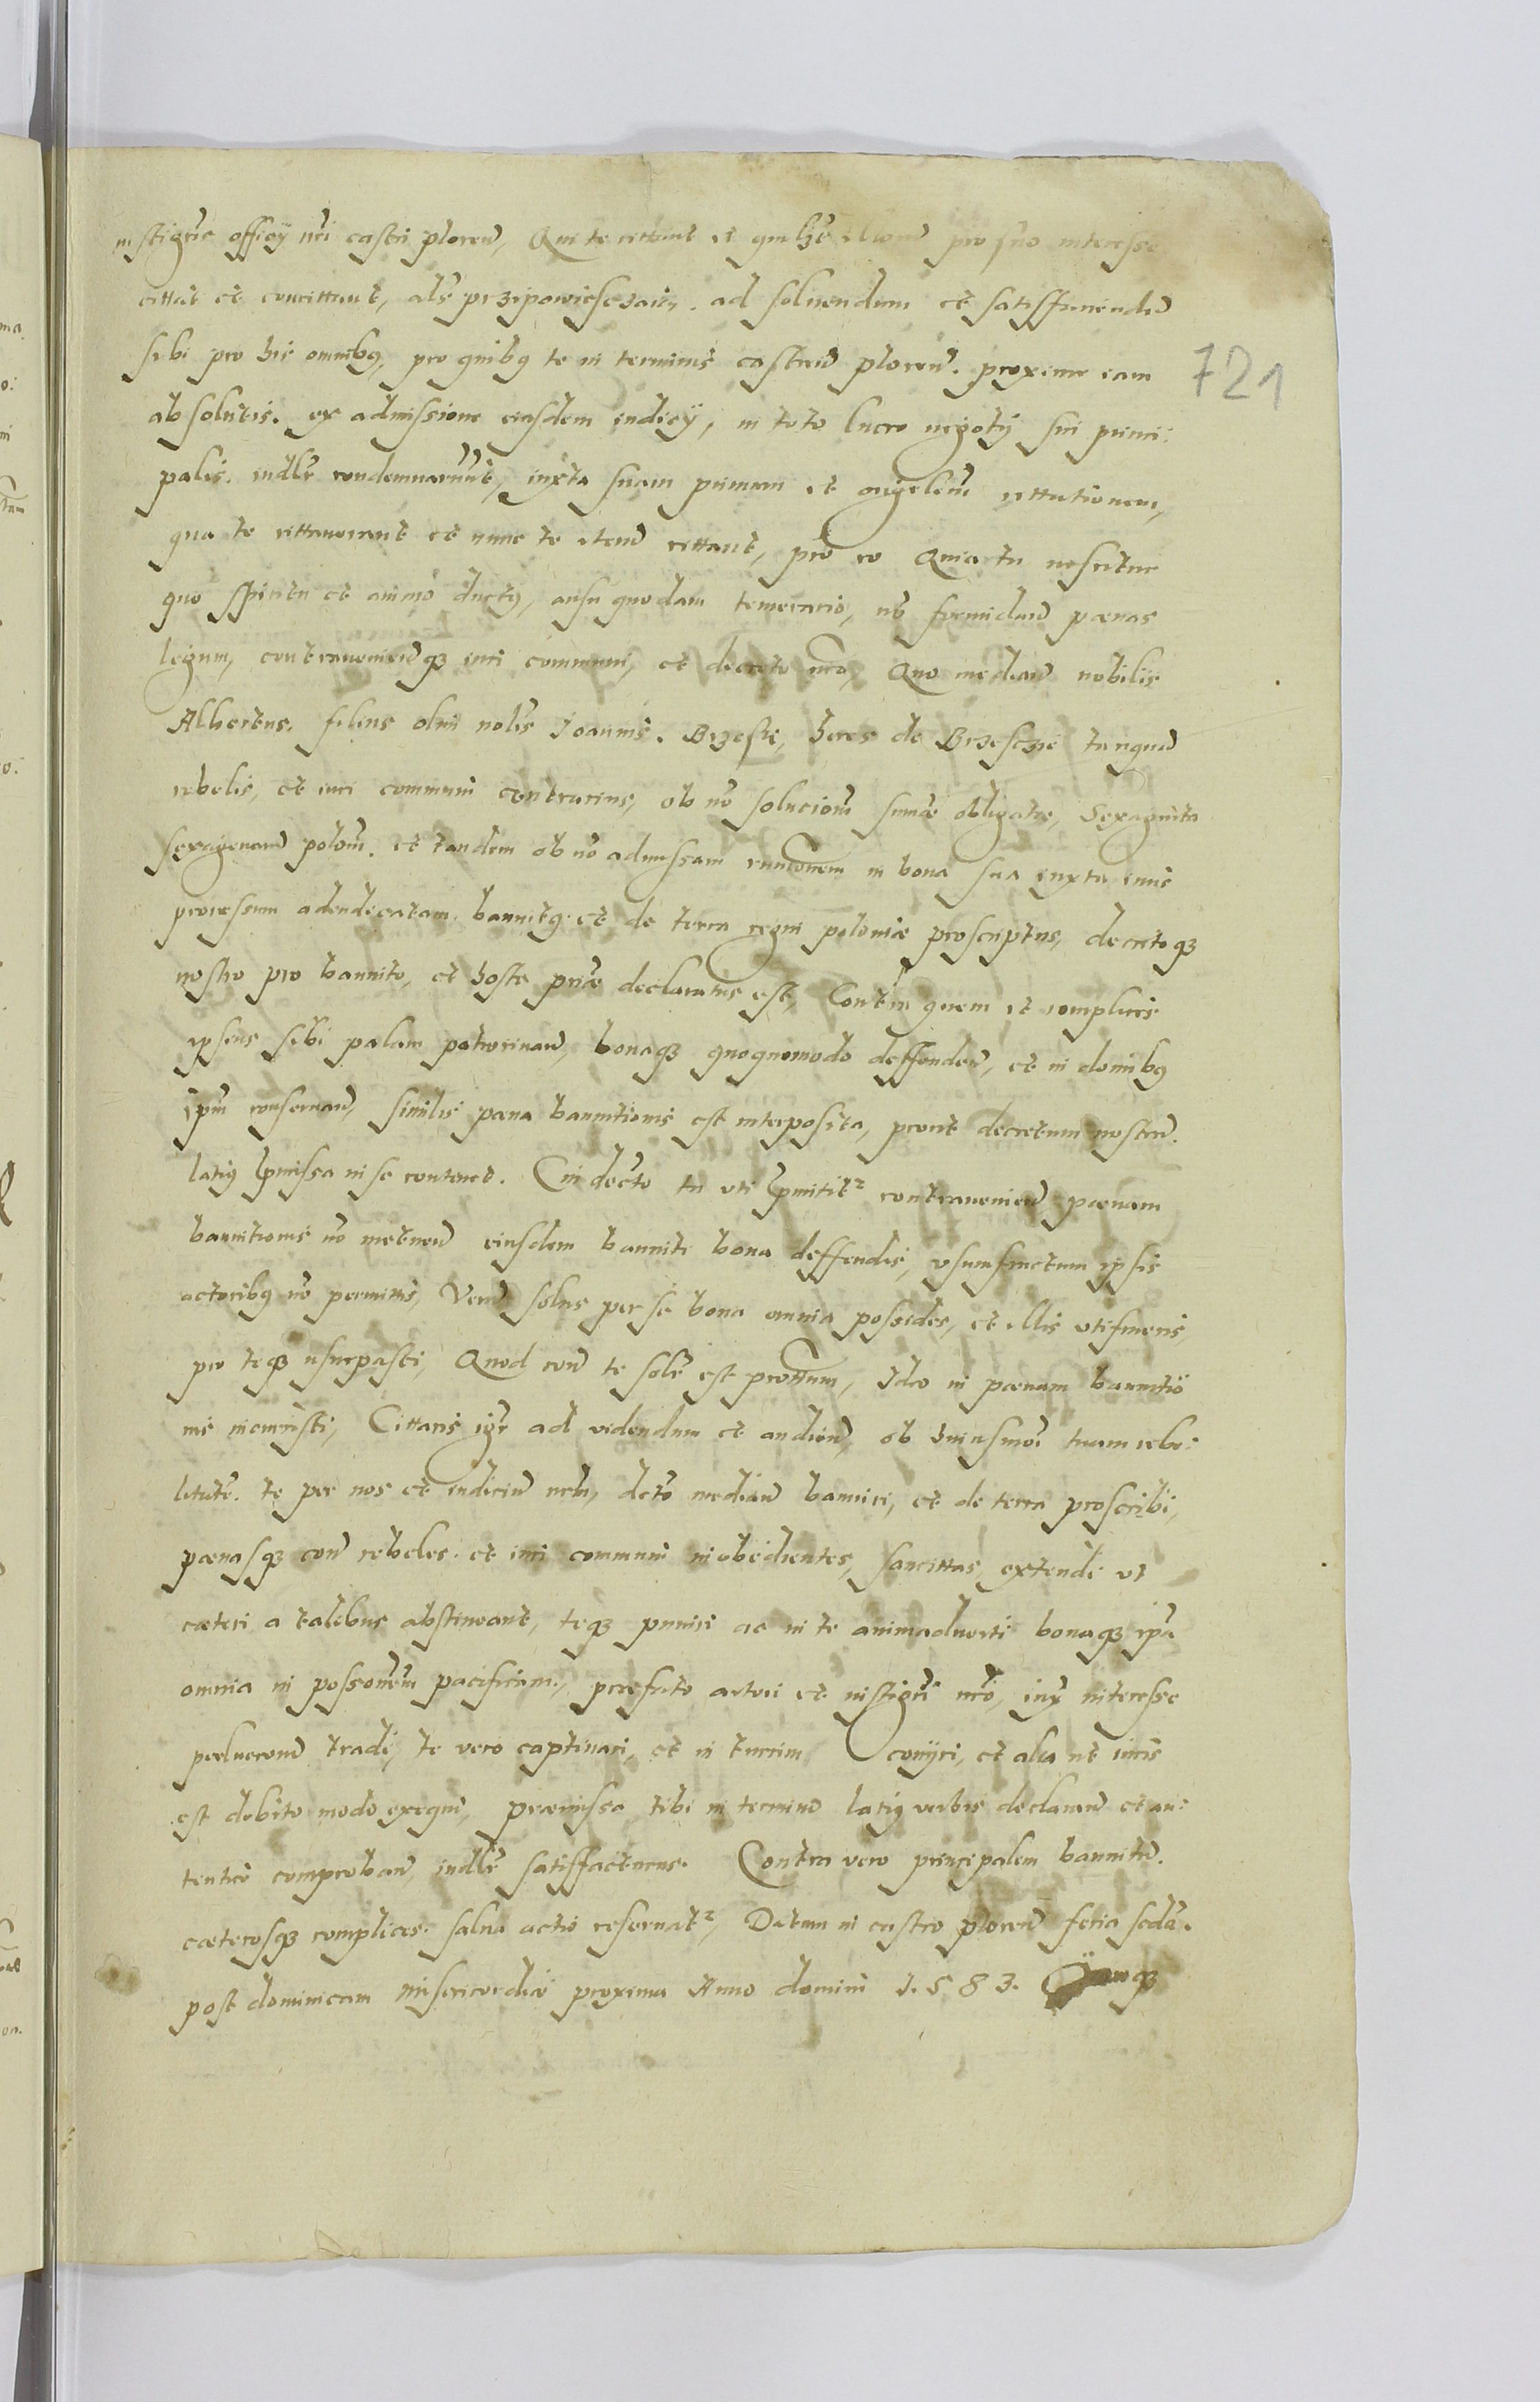 instigtris officÿ nri castri ploceñ, Qui te cittant et quilibet illorum pro suo interesse
cittat et concittant, als przipowiesczaią. ad solvendum et satisffaciendũ
sibi pro his omnibꝫ, pro quibꝫ te in terminis castreñ ploceñ. proxime iam
absolutis. ex admissione eiusdem iudicÿ, in toto lucro negotÿ sui princi:
palis. iudlr condemnarunt, iuxta suam primam et originlem cittationem,
qua te cittaverant et nunc te iterũ cittant, pro eo Quia tu nescitur
quo spiritu et animo ductꝫ, ausu quodam temerario, nõ formidañ pœnas
legum, contravenienꝫ iuri communi, et decreto nro, Quo mediañ nobilis
Albertus. filius olim nolis Joannis. Brzeski, heres de Brzesczie tanquã
rebelis, et iuri communi contrarius, ob nõ solucionẽ sumæ obligatæ, Sexaginta
sexagenarũ polon. et tandem ob nõ admissam rumãonem in bona sua iuxta iuris
processum adiudicatam. bannitꝫ et de terra regni poloniæ proscriptus, decretoqꝫ
nostro pro bannito, et hoste priæ declaratus est, Contra quem et complices
ipsius sibi palam patrocinañ, bonaqꝫ quoquomodo deffendeñ, et in domibꝫ
ipm conservañ, similis pœna bannitionis est interposita, prout decretum nostrũ.
latiꝫ pmissa in se continet. Cui decto tu uti pmittitr contravenieñ pœnam
bannitionis nõ metueñ eiusdem banniti bona deffendis, usumfructum ipsis
actoribꝫ nõ permittis, Verũ solus per se bona omnia possides, et illis utifrueris,
pro teqꝫ usurpasti, Quod coñ te sole est prottum, Ideo in pœnam bannitio
nis incurristi, Cittaris igr ad videndum et audienũ, ob huiusmoi tuam rebe:
litatẽ. te per nos et iudiciũ nrm, decto mediañ banniri, et de terra proscribi,
pœnasqꝫ coñ rebeles. et iuri communi inobedientes, sancittas, extendi ut
cæteri a talibus abstineant, teqꝫ puniri ac in te animadverti bonaqꝫ ipa
omnia in possonem pacificam, præfato actori et instigri nro, iux interesse
predictorum tradi, te vero captivari, et in turrim conijci, et alia ut iuris
est debito modo exequi, præmissa tibi in termino latiꝫ verbis declarañ et au:
tentice comprobañ, iudlr satisffacturus. Contra vero principalem bannitũ.
cæterosqꝫ complices. salva actio reservatr, Datum in castro ploceñ feria secda.
post dominicam Misericordiæ proxima Anno domini 1.5 8 3.
721